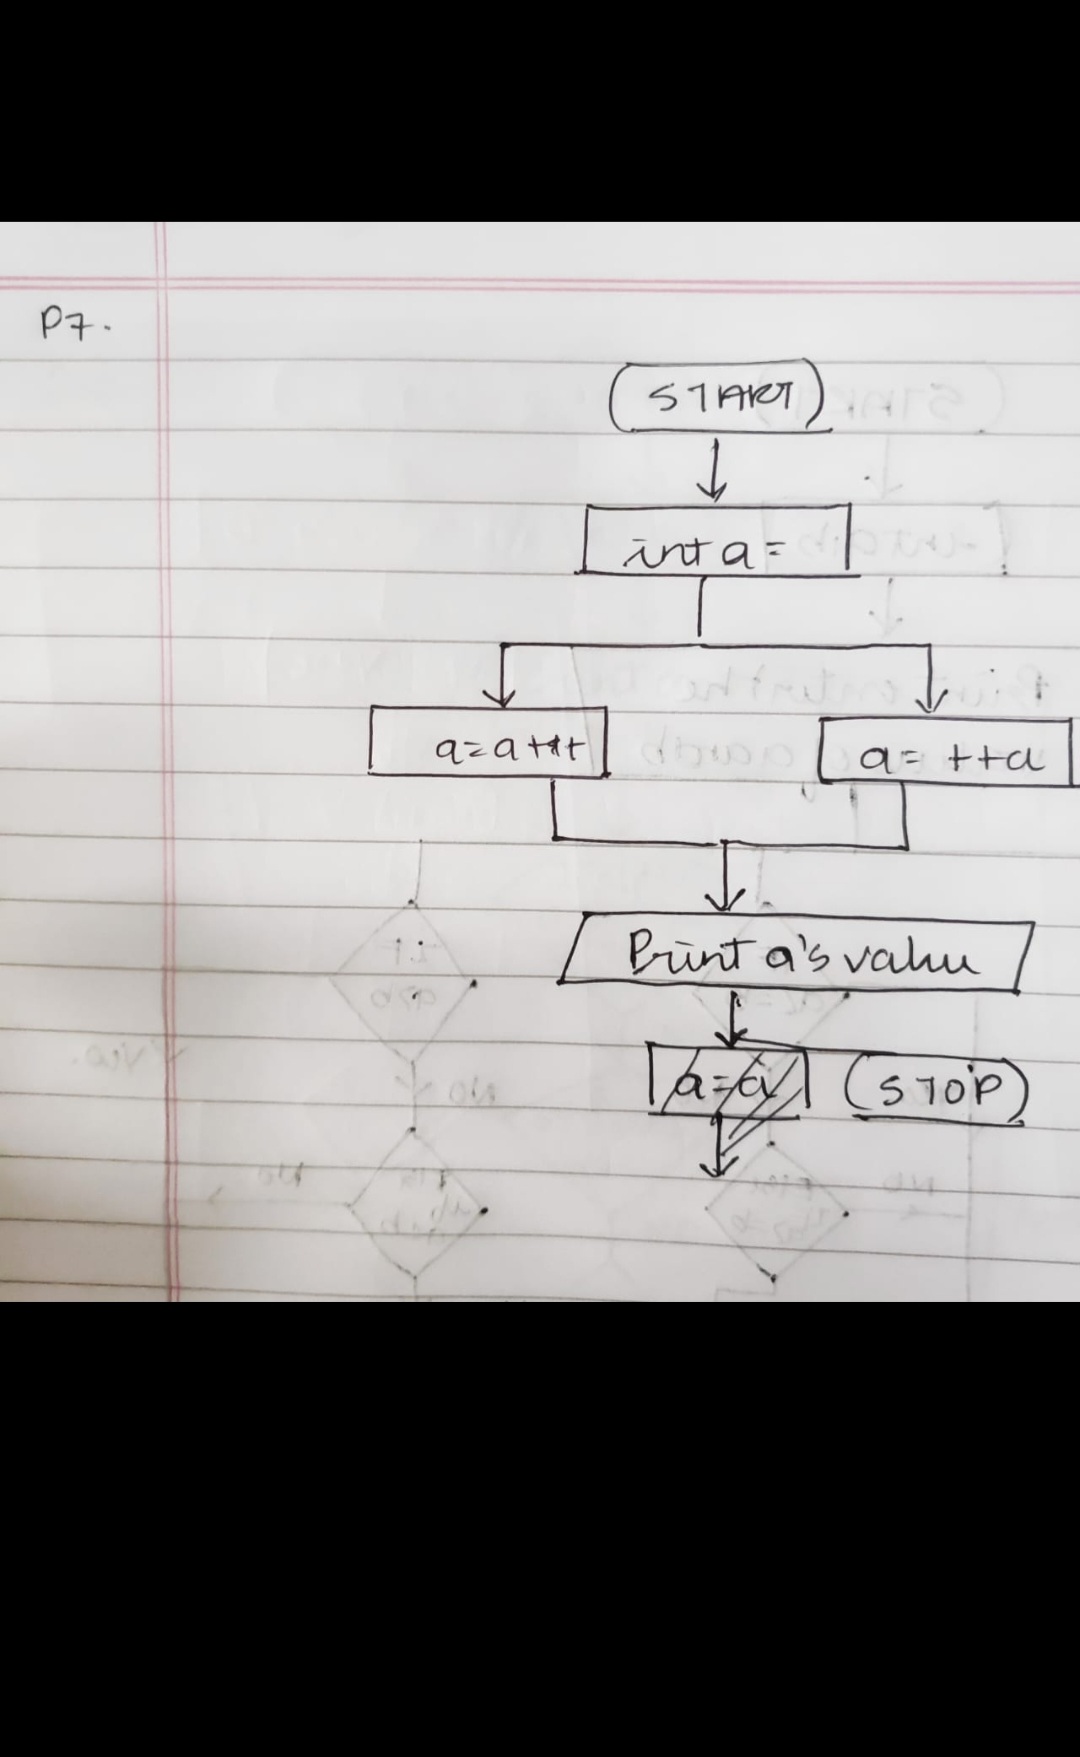 P7.
START
int a =
a=a++
a= ++a
Print a's value
a=a
STOP